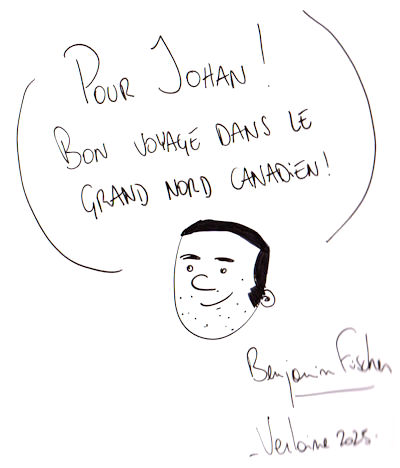 POUR JOHAN !
BON VOYAGE DANS LE
GRAND NORD CANADIEN !
Benjamin Fischer
-Verlaine 2025.